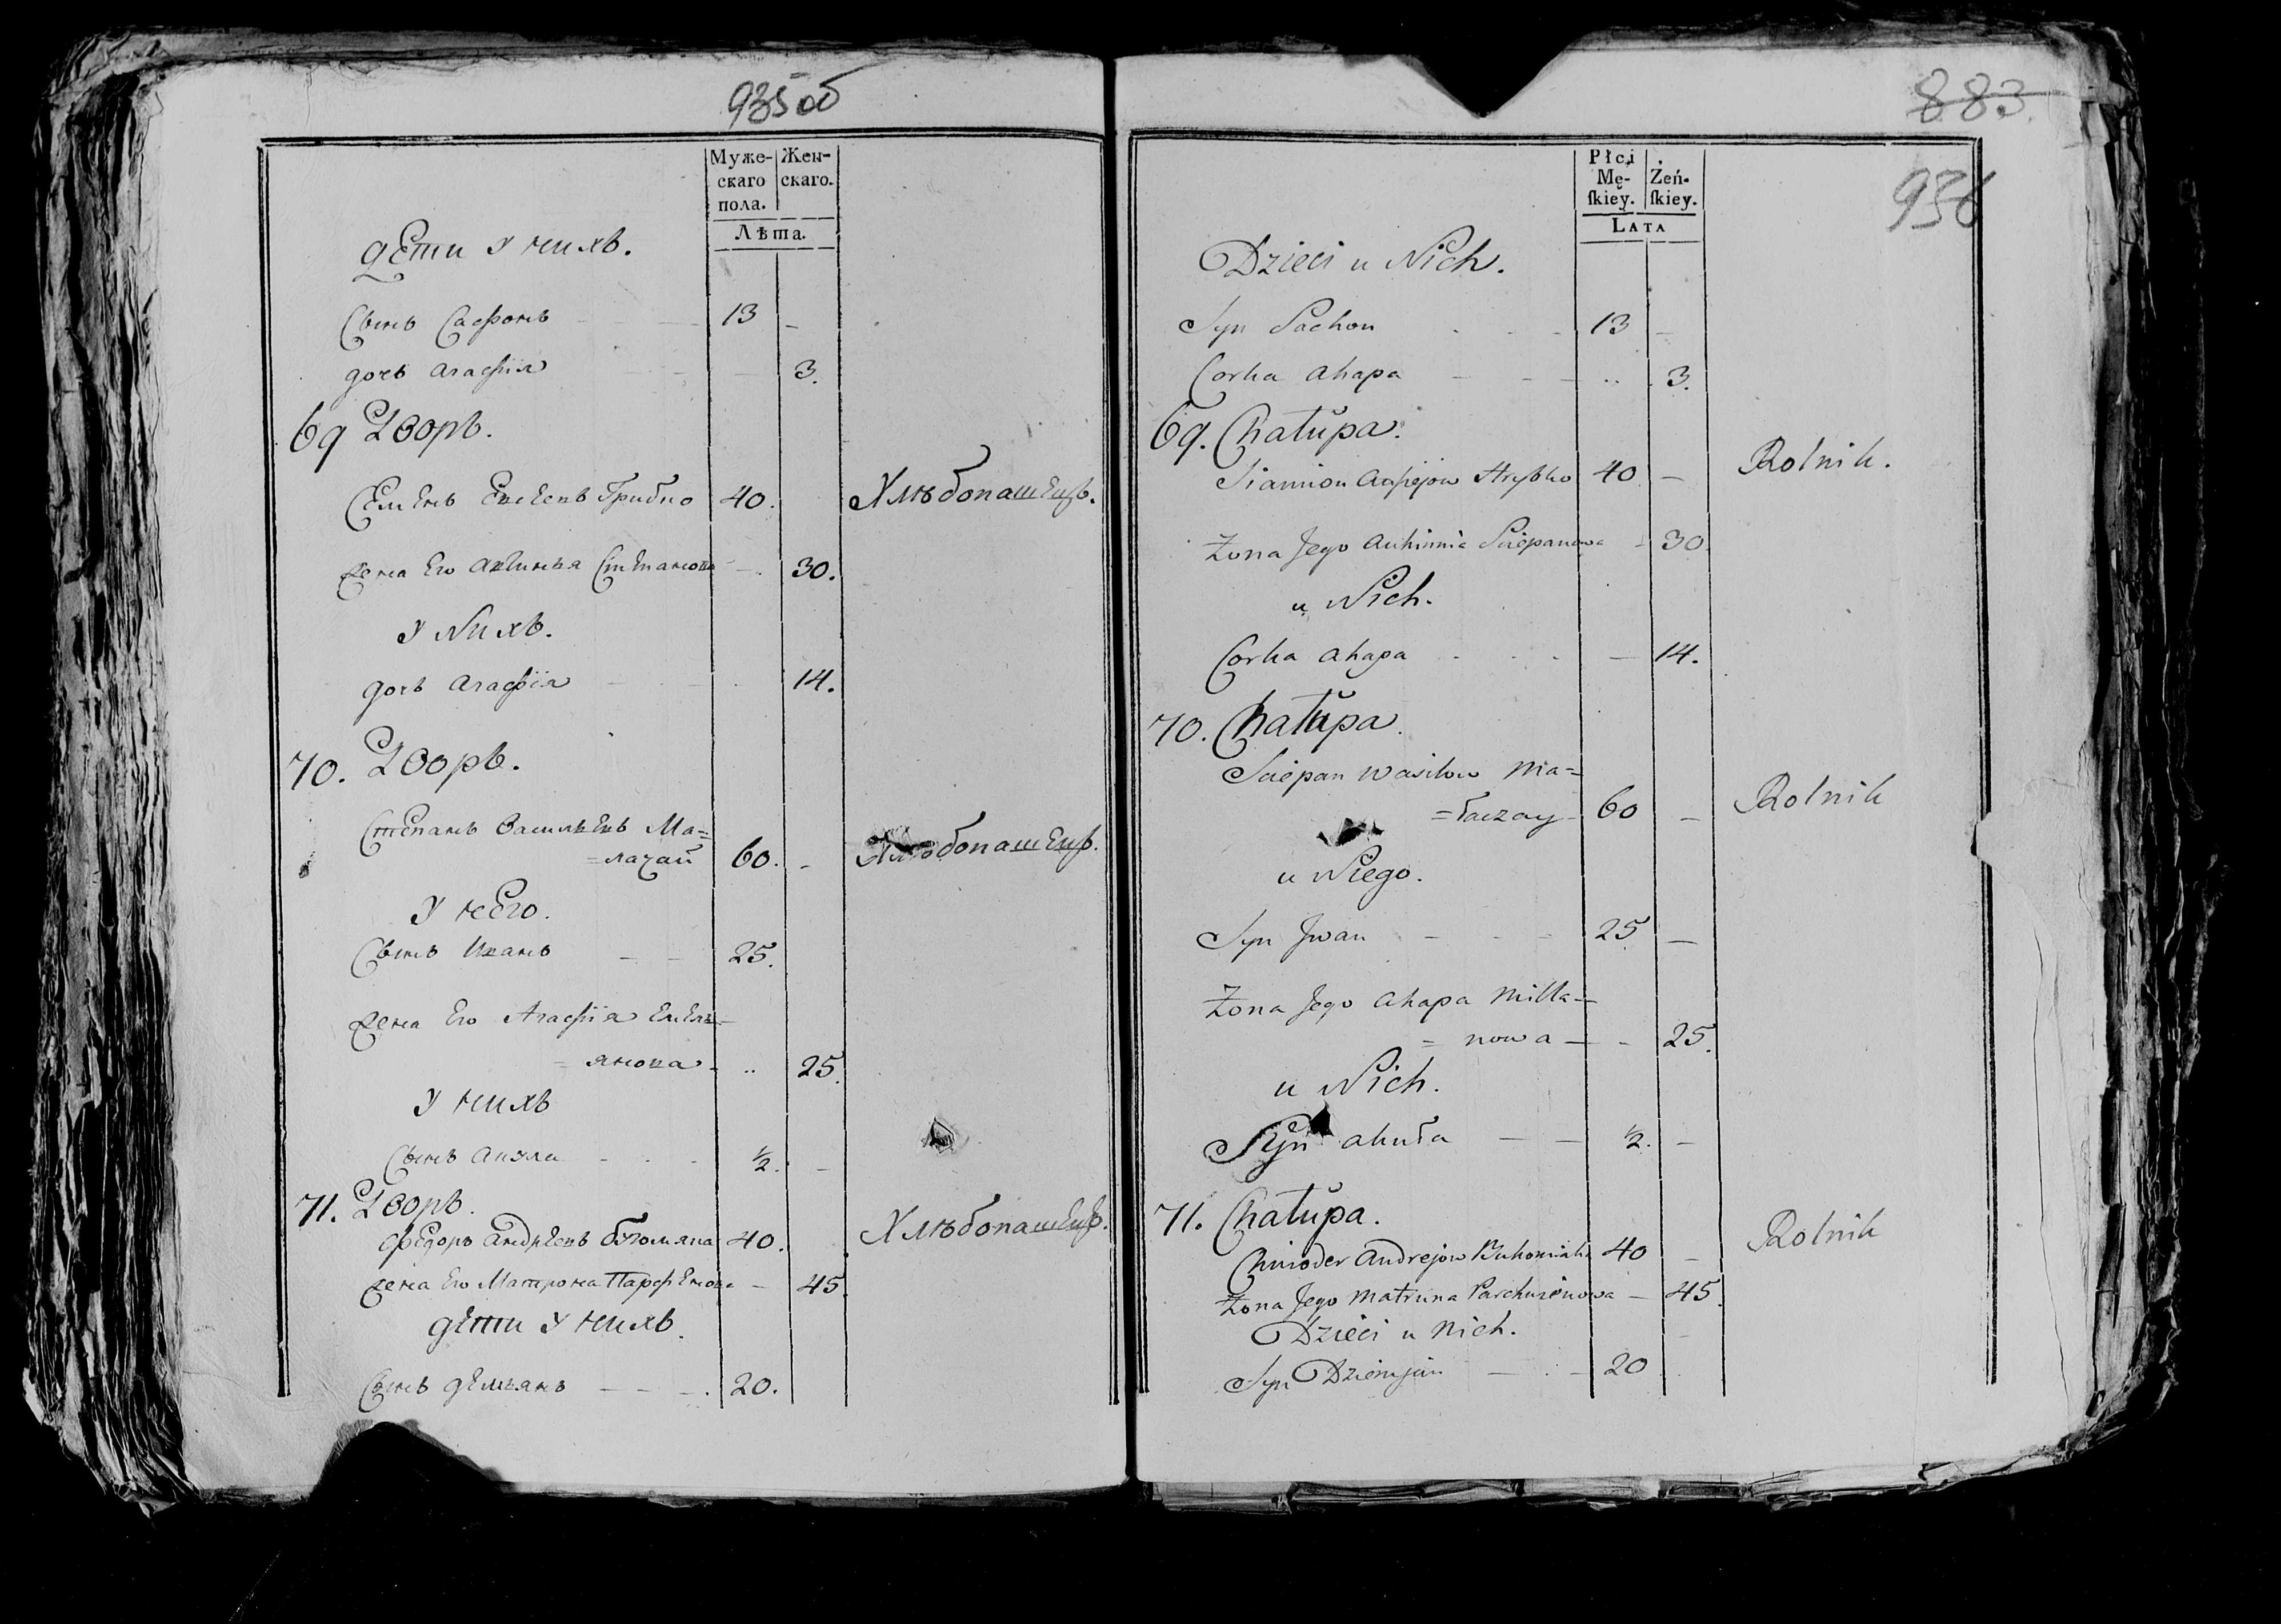 935 об
Муже-
скаго
пола.
Жен-
скаго.
Лѣта.
дети у нихъ.
Сынъ Сафонъ 13 -
дочь Агафiя - 3.
69 Дворъ.
Семенъ Евсеевъ Грибко 40. Хлѣбопашецъ.
жена Его Акѣинья Степанова - 30.
У Нихъ.
дочь Агафiя 14.
70. Дворъ.
Степанъ Васильевъ Ма=
=лачай 60. - Хлѣбопашецъ.
У него.
Сынъ Иванъ 25.
жена Его Агафiя Емель=
=янова - .. 25.
У нихъ
Сынъ 1/2. -
71. Дворъ.
Федоръ Андреевъ 40. Хлѣбопашецъ.
жена Его Матрона Парфенова - 45.
дети у нихъ.
Сынъ демьянъ 20.
883
936
Płci
Mę-
ſkiey.
Żeń-
ſkiey.
LATA
Dzieci u Nich.
Syn Sachon 13 -
Corka Ahapa .. 3.
69. Chałupa.
Siamion Hrybko 40 - Rolnik.
Żona Jego Auhinnia Sciepanowa - 30.
u Nich.
Corka Ahapa - 14.
70. Chałupa.
Sciepan Wasilow Ma=
=łaczay 60 - Rolnik
u Niego.
Syn Jwan 25 -
Żona Jego Ahapa Milla=
= nowa - 25.
u Nich.
Syn Akuła 1/2. -
71. Chałupa.
Chwioder Andrejow 40 - Rolnik
Żona Jego Matruna Parchwienowa - 45.
Dzieci u Nich.
Syn Dziemjan 20